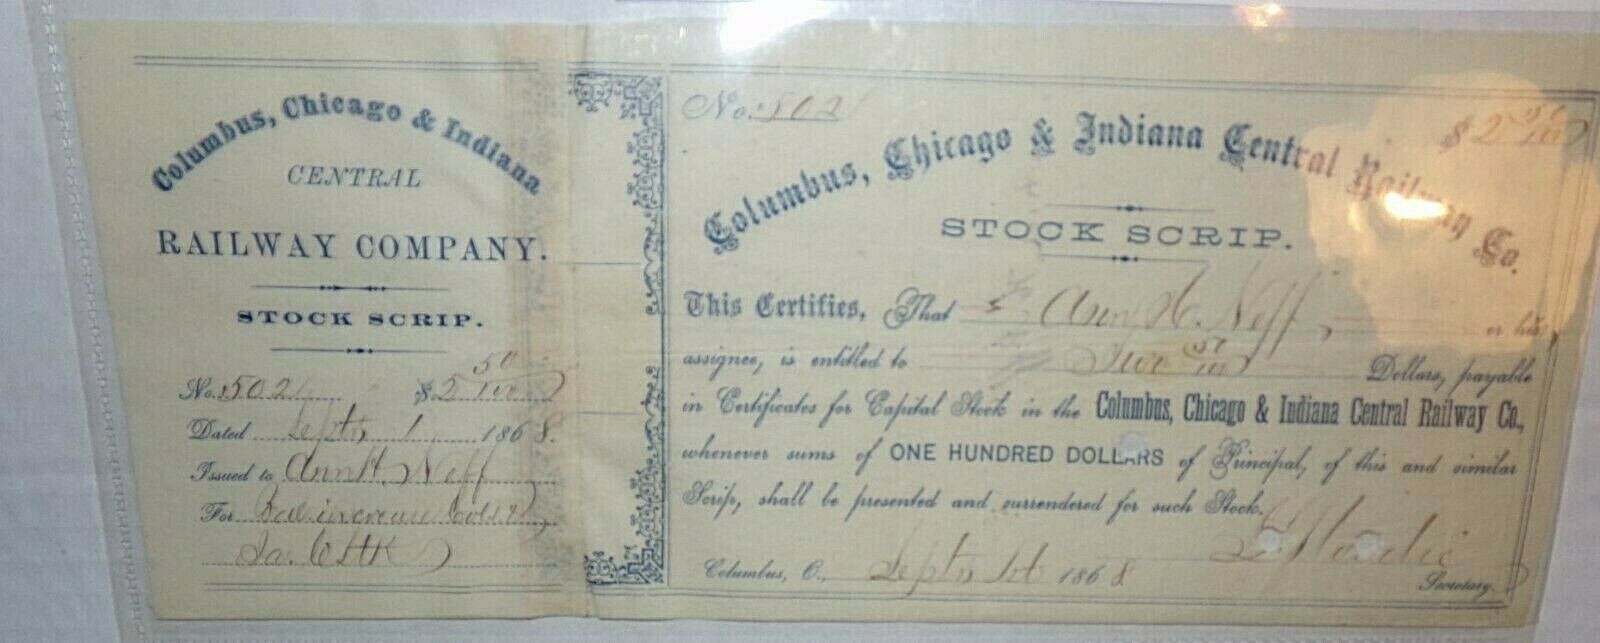 Columbus, Chicago & Indiana
CENTRAL
RAILWAY COMPANY.
STOCK SCRIP.
No. 502 $2 50/100
Dated Sept 1 1868.
Issued to Ann H. Neff
For Bal increase
No. 502 $2 50/100
Columbus, Chicago & Indiana Central Railway Co.
STOCK SCRIP.
This Certifies, That Ann H. Neff or his
assignee, is entitled to Two 50/100 Dollars, payable
in Certificates for Capital Stock in the Columbus, Chicago & Indiana Central Railway Co.,
whenever sums of ONE HUNDRED DOLLARS of Principal, of this and similar
Scrip, shall be presented and surrendered for such Stock.
Columbus, O., Sept 1st 1868 Secretary.